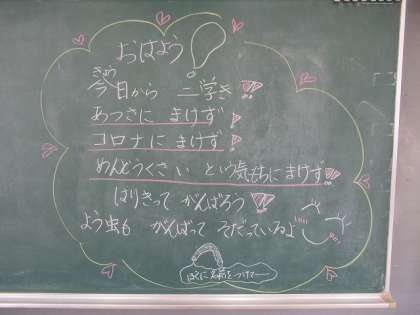 おはよう!
きょう
今日から 二学き!!
あつさに まけず!
コロナに まけず!
めんどうくさい という気もちに まけず!!
はりきって がんばろう!!
よう虫も がんばって そだっているよ
ぼくに名前をつけてー